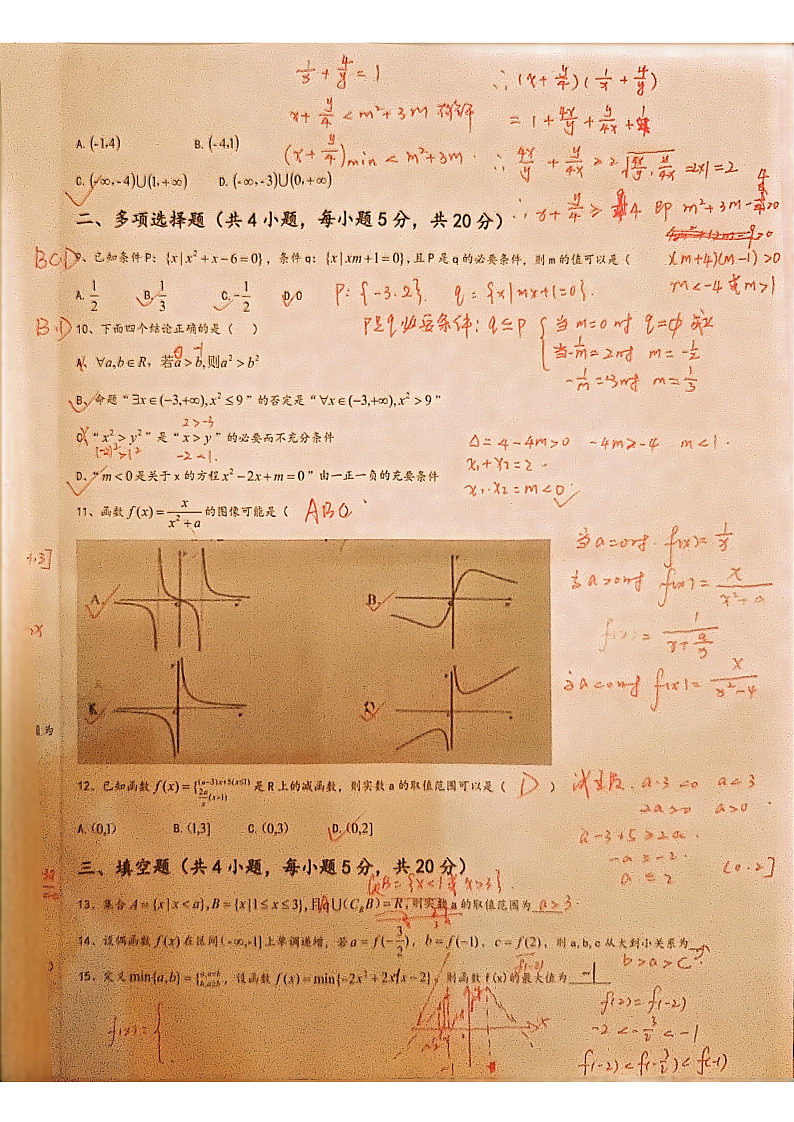 1/x + 4/y = 1
∴ (x + y/4)(1/x + 4/y)
x + y/4 < m² + 3m 有解
= 1 + 4x/y + y/4x + 1
A. (-1,4) B. (-4,1)
(x + y/4)min < m² + 3m
∴ 4x/y + y/4x ≥ 2√(4x/y · y/4x) = 2×1 = 2
C. (-∞,-4)⋃(1,+∞) D. (-∞,-3)⋃(0,+∞)
∴ x + y/4 ≥ 4 即 m² + 3m - 4 > 0
二、多项选择题（共4小题，每小题5分，共20分）
(m+4)(m-1) > 0
m < -4 或 m > 1
BCD 9、已知条件P：{x|x²+x−6=0}，条件q：{x|xm+1=0}，且P是q的必要条件，则m的值可以是（
A. 1/2 B. 1/3 C. -1/2 D. 0
P: {-3.2}. q = {x|mx+1=0}.
P是q必要条件: q⊆P
当 m=0时 q=∅ 成立
当-1/m=2时 m=-1/2
-1/m=-3时 m=1/3
B.D 10、下面四个结论正确的是（ ）
A、∀a,b∈R，若a>b,则a²>b²
0 -1
B、命题“∃x∈(−3,+∞),x²≤9”的否定是“∀x∈(−3,+∞),x²>9”
2>-3
C、“x²>y²”是“x>y”的必要而不充分条件
(-2)²>1² -2<1.
D、“m<0是关于x的方程x²−2x+m=0”由一正一负的充要条件
Δ=4-4m>0 -4m>-4 m<1.
x₁+x₂=2.
x₁·x₂=m<0
11、函数f(x)=x/(x²+a)的图像可能是（ ABC
当a=0时. f(x)=1/x
当a>0时 f(x)=x/(x²+a)
f(x)=1/(x+a/x)
当a<0时 f(x)=x/(x²-4)
A B
D
12、已知函数f(x)={(a−3)x+5(x≤1) 2a/x(x>1) 是R上的减函数，则实数a的取值范围可以是（ D ）
a-3<0 a<3
2a>0 a>0
A. (0,1) B. (1,3] C. (0,3) D. (0,2]
a-3+5≥2a.
-a≥-2.
a≤2
(0.2]
三、填空题（共4小题，每小题5分，共20分）
CRB={x<1或x>3}.
13、集合A={x|x<a},B={x|1≤x≤3},且A⋃(CRB)=R,则实数a的取值范围为 a>3
14、设偶函数f(x)在区间(-∞,-1]上单调递增，若a=f(−3/2)，b=f(−1)，c=f(2)，则a,b,c从大到小关系为
f(-2) b>a>c
15、定义min{a,b}={a,a<b b,a≥b，设函数f(x)=min{−2x²+2x|x−2}，则函数f(x)的最大值为 -1
f(2)=f(-2)
-2<-3/2<-1
f(-2)<f(-3/2)<f(-1)
f(x)={